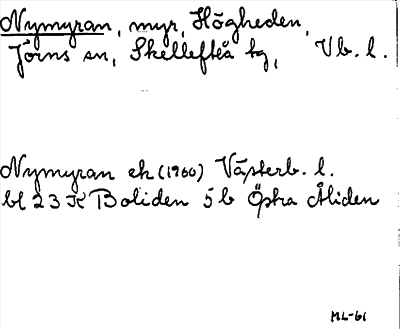 Nymyran, myr, Högheden,
Jörns sn, Skellefteå tg, Vb. l.
Nymyran ek (1960) Västerb. l.
bl 23 K Boliden 5 b Östra Åliden
ML-61